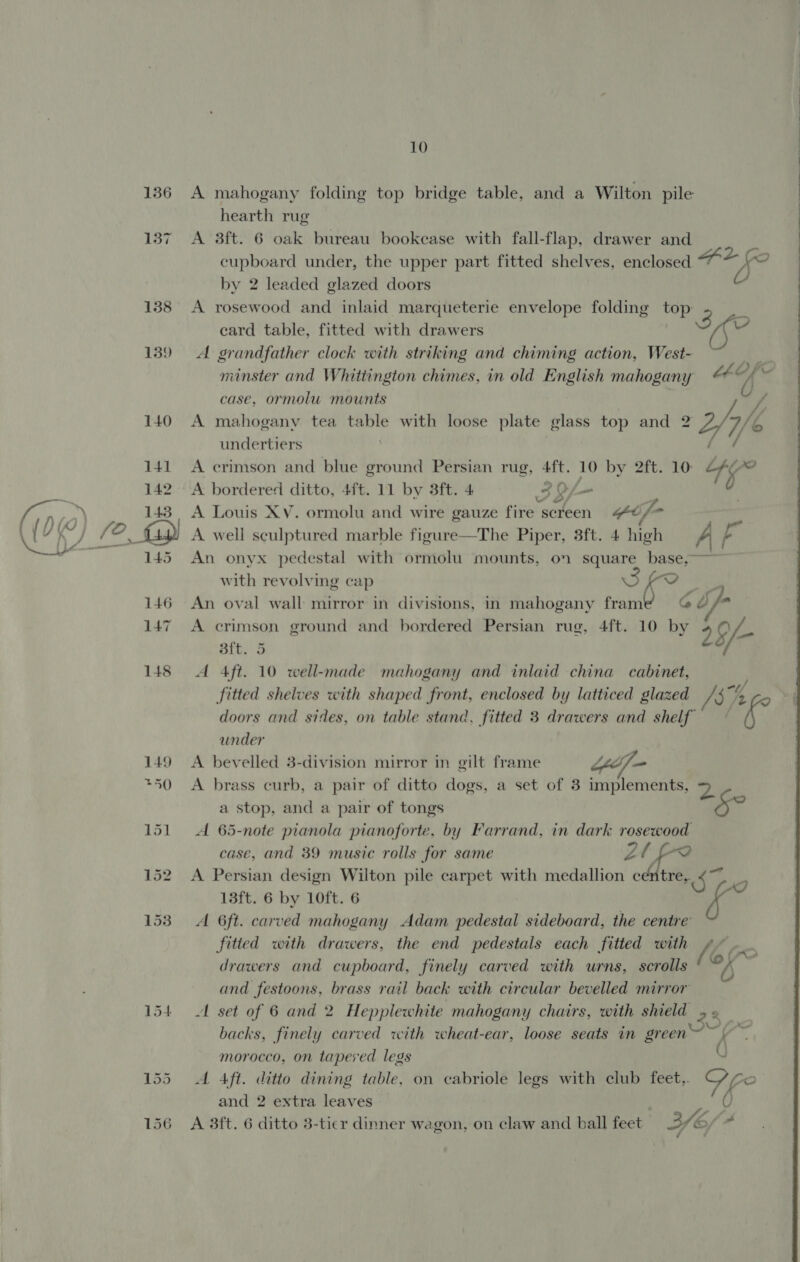 10
136 A mahogany folding top bridge table, and a Wilton pile
hearth rug
137 A 3ft. 6 oak bureau bookcase with fall-flap, drawer and
cupboard under, the upper part fitted shelves, enclosed
by 2 leaded glazed doors
138 A rosewood and inlaid marqueterie envelope folding top
card table, fitted with drawers
139 A grandfather clock with striking and chiming action, West-
minster and Whittington chimes, in old English mahogany
case, ormolu mounts
140 A mahogany tea table with loose plate glass top and 2 2/7/6
undertiers
141 A crimson and blue ground Persian rug, 4ft. 10 by 2ft. 10
142 A bordered ditto, 4ft. 11 by 3ft. 4
143 A Louis XV. ormolu and wire gauze fire screen 40/-
A well sculptured marble figure—The Piper, 3ft. 4 high
145 An onyx pedestal with ormolu mounts, on square base,
with revolving cap
146 An oval wall mirror in divisions, in mahogany frame
147 A crimson ground and bordered Persian rug, 4ft. 10 by
3ft. 5
148 A 4ft. 10 well-made mahogany and inlaid china cabinet,
fitted shelves with shaped front, enclosed by latticed glazed
doors and sides, on table stand, fitted 3 drawers and shelf
under
149 A bevelled 3-division mirror in gilt frame
150 A brass curb, a pair of ditto dogs, a set of 3 implements,
a stop, and a pair of tongs
151 A 65-note pianola pianoforte, by Farrand, in dark rosewood
case, and 39 music rolls for same
152 A Persian design Wilton pile carpet with medallion centre,
13ft. 6 by 10ft. 6
153 A 6ft. carved mahogany Adam pedestal sideboard, the centre
fitted with drawers, the end pedestals each fitted with
drawers and cupboard, finely carved with urns, scrolls
and festoons, brass rail back with circular bevelled mirror
154 A set of 6 and 2 Hepplewhite mahogany chairs, with shield
backs, finely carved with wheat-ear, loose seats in green
morocco, on tapered legs
155 A 4ft. ditto dining table, on cabriole legs with club feet,
and 2 extra leaves
156 A 3ft. 6 ditto 3-tier dinner wagon, on claw and ball feet